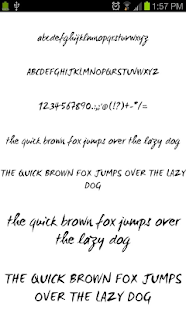 1:57 PM
abcdefghijklmnopqrstuvwxyz
ABCDEFGHIJKLMNOPQRSTUVWXYZ
1234567890.:,;'@(!?)+-*/=
the quick brown fox jumps over the lazy dog
THE QUICK BROWN FOX JUMPS OVER THE LAZY
DOG
the quick brown fox jumps over
the lazy dog
THE QUICK BROWN FOX JUMPS
OVER THE LAZY DOG